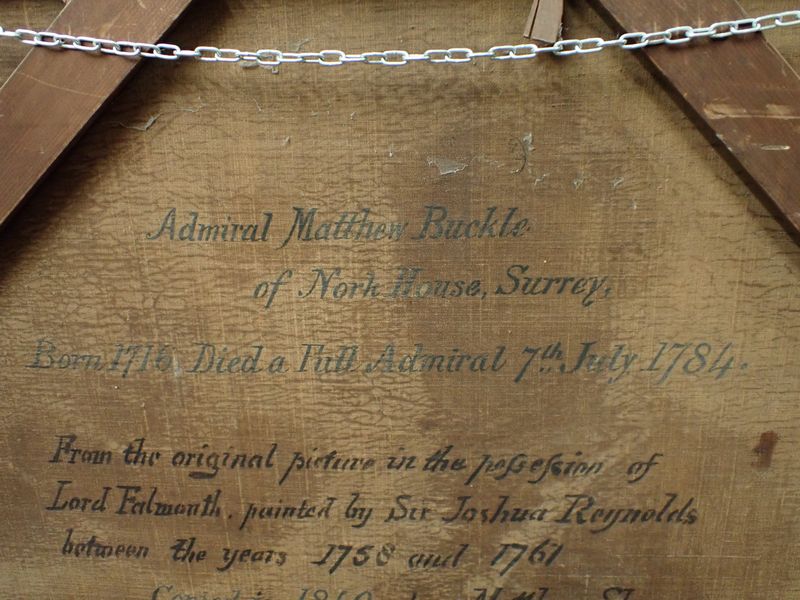 Admiral Matthew Buckle
of Nork House, Surrey,
Born 1716, Died a Full Admiral 7th. July 1784.
From the original picture in the poſseſsion of
Lord Falmouth, painted by Sir Joshua Reynolds
between the years 1758 and 1761
Copied in